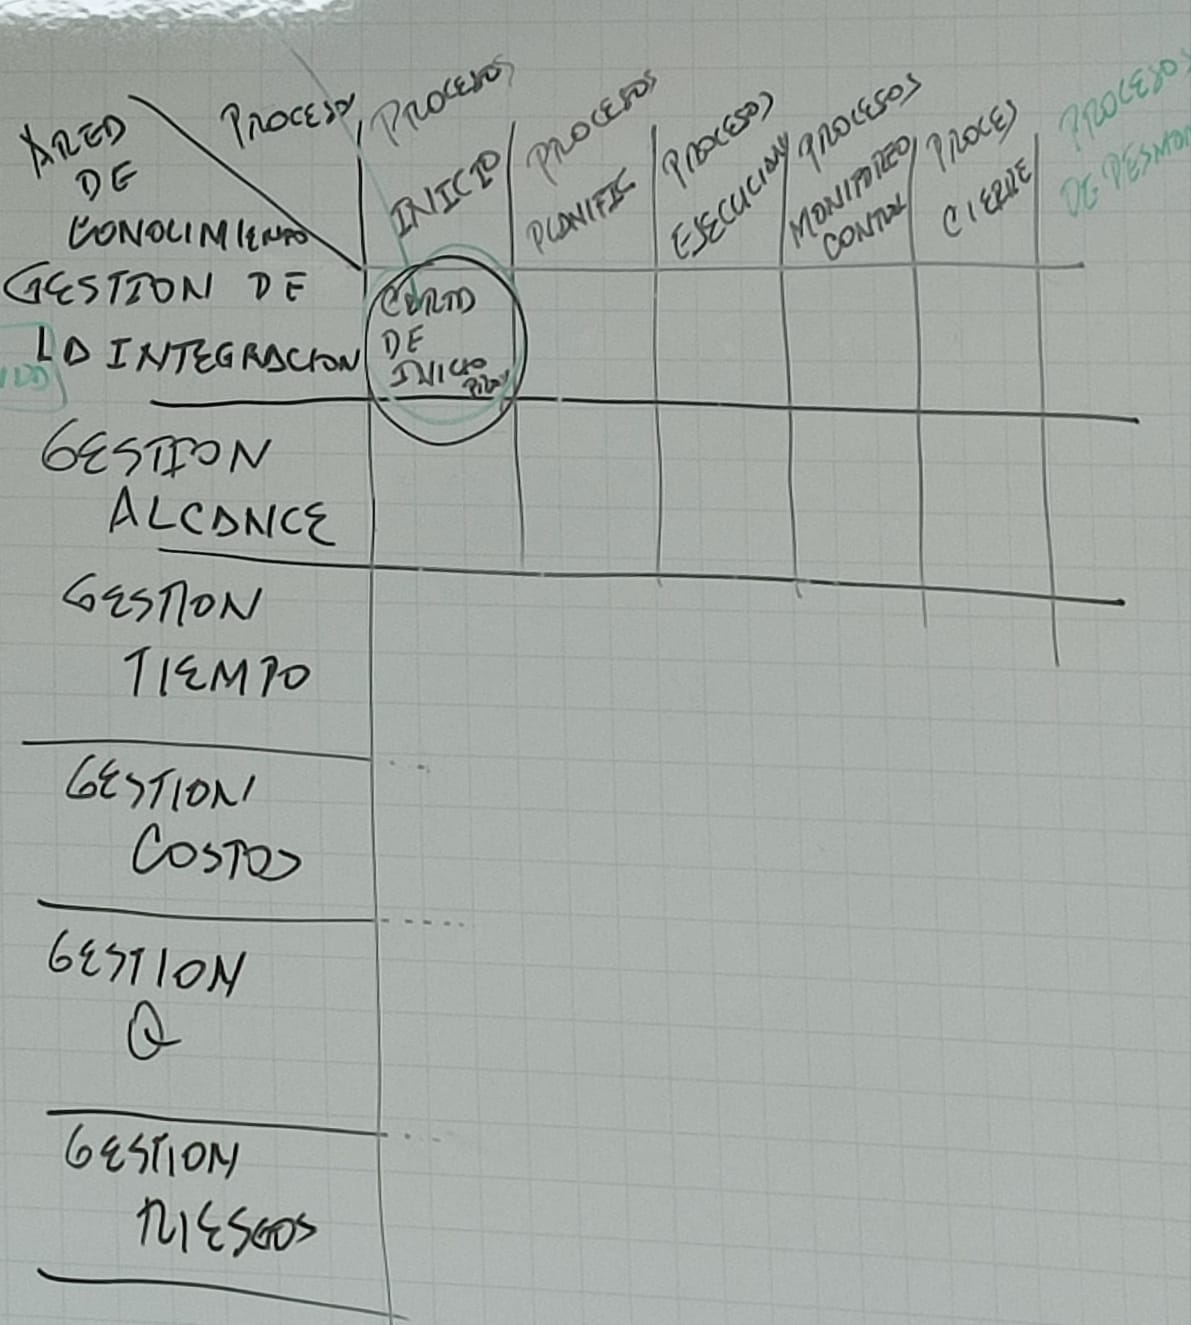 ÁREA
DE
CONOCIMIENTO
PROCESOS
PROCESOS
INICIO
PROCESOS
PLANIFIC
PROCESOS
EJECUCION
PROCESOS
MONITOREO
CONTROL
PROCES
CIERRE
PROCESOS
DE
GESTION DE
LA INTEGRACION
CARTA
DE
INICIO
GESTION
ALCANCE
GESTION
TIEMPO
GESTION
COSTOS
GESTION
Q
GESTION
RIESGOS